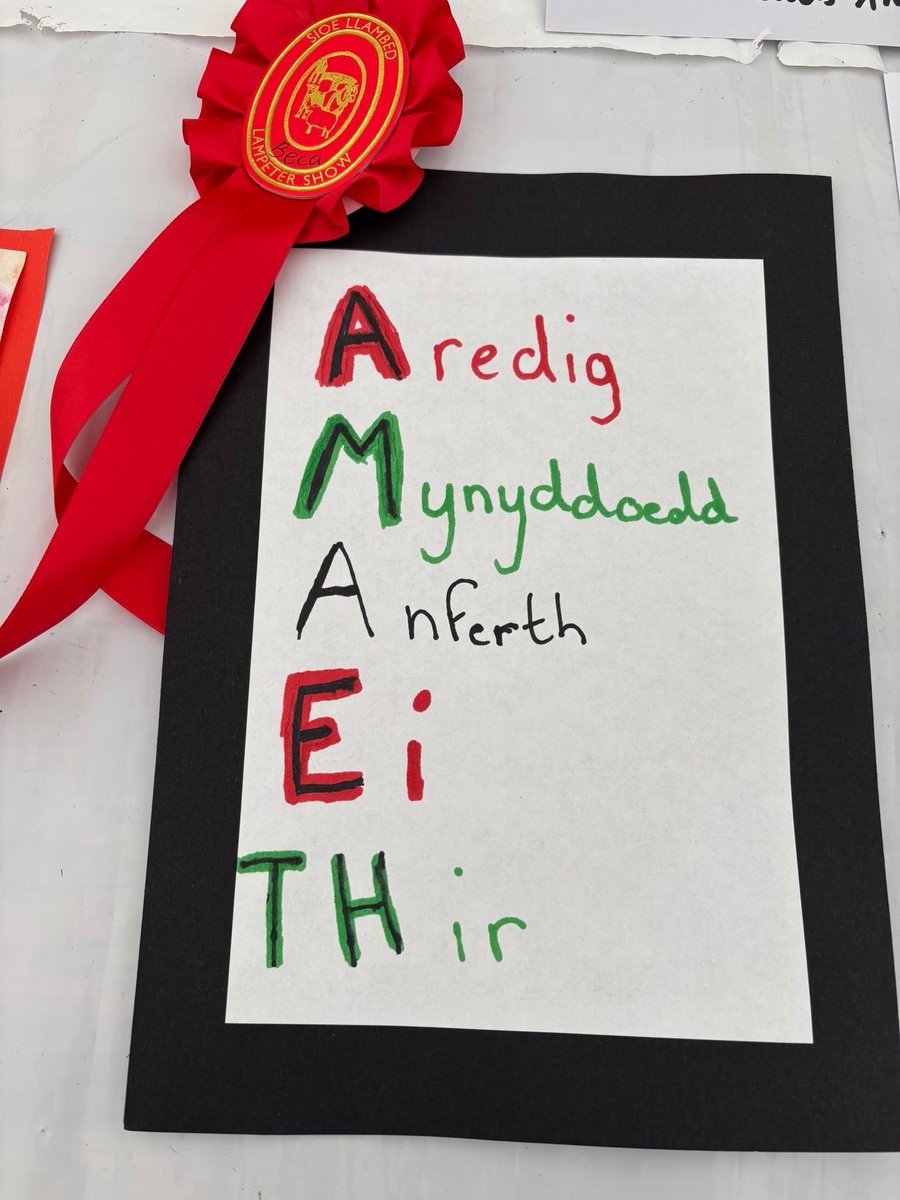 SIOE LLAMBED
Beca
LAMPETER SHOW
Aredig
Mynyddoedd
Anferth
Ei
THir